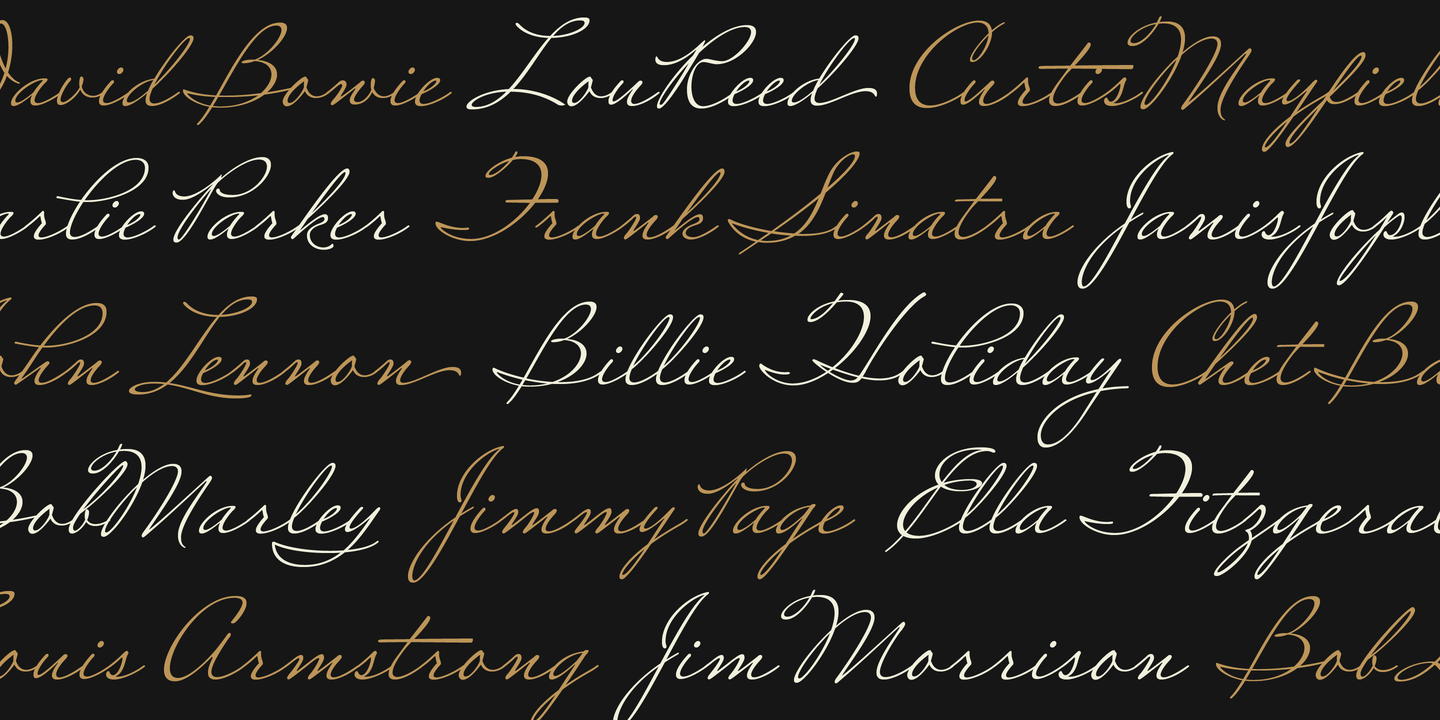 David Bowie Lou Reed Curtis Mayfield
arlie Parker Frank Sinatra Janis Jopl
ohn Lennon Billie Holiday Chet Ba
Bob Marley Jimmy Page Ella Fitzgeral
ouis Armstrong Jim Morrison Bob